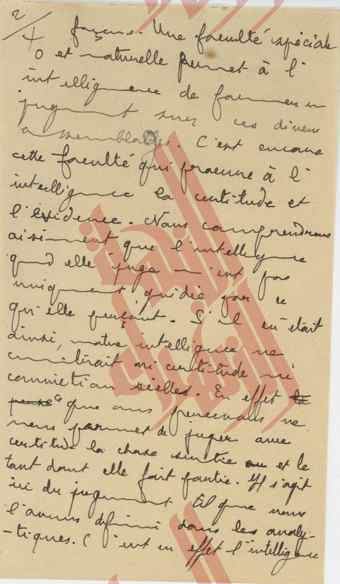 2/
40
façons. Une faculté spéciale
et naturelle permet à l'
intelligence de former un
jugement sur ces divers
assemblages. C'est encore
cette faculté qui procure à l'
intelligence la certitude et
l'évidence. Nous comprendrons
aisément que l'intelligence
quand elle juge n'est pas
uniquement guidée par ce
qu'elle perçoit. S'il en était
ainsi, notre intelligence ne
ni certitude ni
conviction réelles. En effet
que nous percevons ne
nous permet de juger avec
certitude la chose et le
tant dont elle fait partie. Il s'agit
ici du jugement tel que nous
l'avons défini dans les analy-
-tiques. C'est en effet l'intelligence